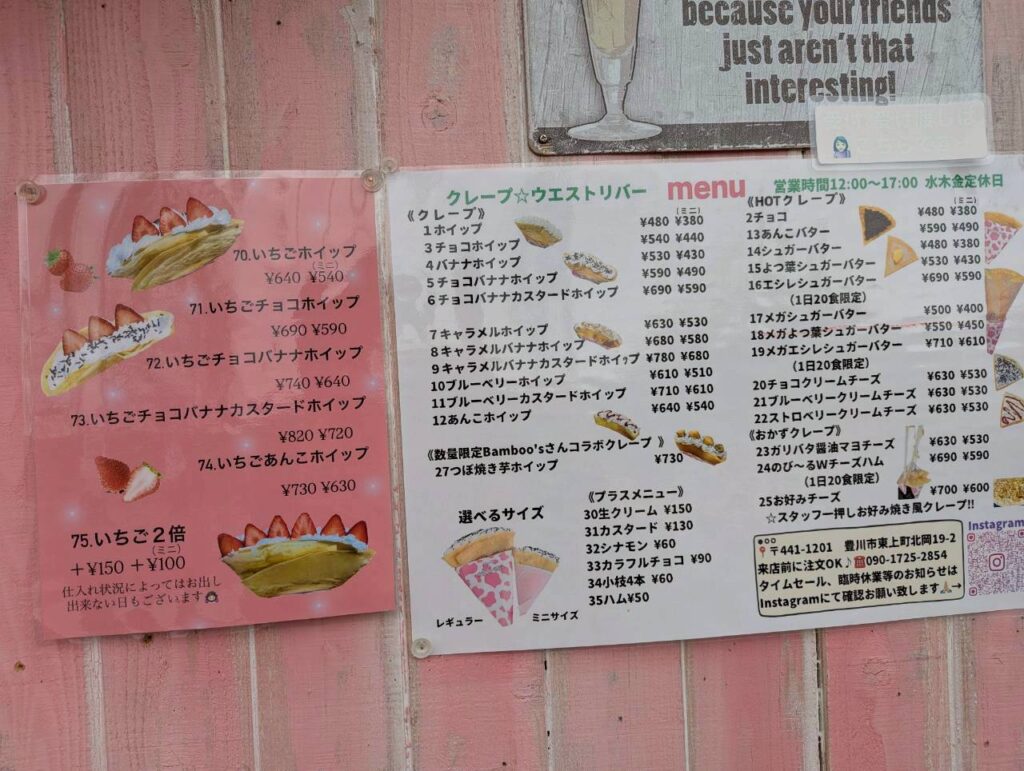 because your friends
just aren't that
interesting!
70.いちごホイップ
(ミニ)
¥640 ¥540
71.いちごチョコホイップ
¥690 ¥590
72.いちごチョコバナナホイップ
¥740 ¥640
73.いちごチョコバナナカスタードホイップ
¥820 ¥720
74.いちごあんこホイップ
¥730 ¥630
75.いちご2倍
(ミニ)
+¥150 +¥100
仕入れ状況によってはお出し
出来ない日もございます
クレープ☆ウエストリバー menu 営業時間12:00〜17:00 水木金定休日
《クレープ》 (ミニ)
1ホイップ ¥480 ¥380
3チョコホイップ ¥540 ¥440
4バナナホイップ ¥530 ¥430
5チョコバナナホイップ ¥590 ¥490
6チョコバナナカスタードホイップ ¥690 ¥590
7キャラメルホイップ ¥630 ¥530
8キャラメルバナナホイップ ¥680 ¥580
9キャラメルバナナカスタードホイップ ¥780 ¥680
10ブルーベリーホイップ ¥610 ¥510
11ブルーベリーカスタードホイップ ¥710 ¥610
12あんこホイップ ¥640 ¥540
《数量限定Bamboo'sさんコラボクレープ 》
27つぼ焼き芋ホイップ ¥730
選べるサイズ
レギュラー ミニサイズ
《プラスメニュー》
30生クリーム ¥150
31カスタード ¥130
32シナモン ¥60
33カラフルチョコ ¥90
34小枝4本 ¥60
35ハム¥50
《HOTクレープ》 (ミニ)
2チョコ ¥480 ¥380
13あんこバター ¥590 ¥490
14シュガーバター ¥480 ¥380
15よつ葉シュガーバター ¥530 ¥430
16エシレシュガーバター ¥690 ¥590
(1日20食限定)
17メガシュガーバター ¥500 ¥400
18メガよつ葉シュガーバター ¥550 ¥450
19メガエシレシュガーバター ¥710 ¥610
(1日20食限定)
20チョコクリームチーズ ¥630 ¥530
21ブルーベリークリームチーズ ¥630 ¥530
22ストロベリークリームチーズ ¥630 ¥530
《おかずクレープ》
23ガリバタ醤油マヨチーズ ¥630 ¥530
24のび〜るWチーズハム ¥690 ¥590
(1日20食限定)
25お好みチーズ ¥700 ¥600
☆スタッフ一押しお好み焼き風クレープ!!
〒441-1201 豊川市東上町北岡19-2
来店前に注文OK♪090-1725-2854
タイムセール、臨時休業等のお知らせは
Instagramにて確認お願い致します→
Instagram